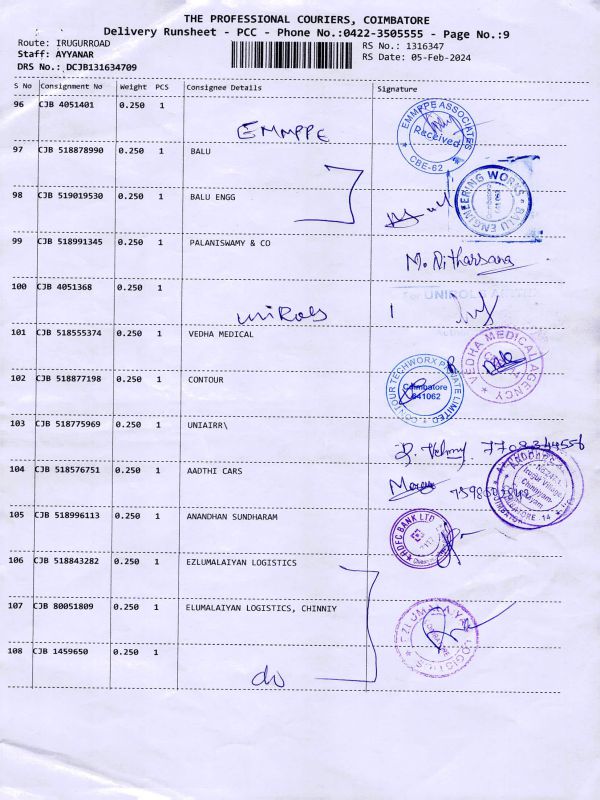 THE PROFESSIONAL COURIERS, COIMBATORE
Delivery Runsheet - PCC - Phone No.:0422-3505555 - Page No.:9
Route: IRUGURROAD
Staff: AYYANAR
DRS No.: DCJB131634709
RS No.: 1316347
RS Date: 05-Feb-2024
S No Consignment No Weight PCS Consignee Details Signature
96 CJB 4051401 0.250 1
EMMPPE
EMMPPE ASSOCIATES
Received
CBE-62
97 CJB 518878990 0.250 1 BALU
98 CJB 519019530 0.250 1 BALU ENGG
BALU ENGINEERING WORKS
99 CJB 518991345 0.250 1 PALANISWAMY & CO
M. Nitharsana
100 CJB 4051368 0.250 1
UNIROLS
For UNIROLS
101 CJB 518555374 0.250 1 VEDHA MEDICAL
VEDHA MEDICAL AGENCY
102 CJB 518877198 0.250 1 CONTOUR
CONTOUR TECHWORX PRIVATE LIMITED
Coimbatore
641062
103 CJB 518775969 0.250 1 UNIAIRR\
104 CJB 518576751 0.250 1 AADTHI CARS
105 CJB 518996113 0.250 1 ANANDHAN SUNDHARAM
HDFC BANK LTD
106 CJB 518843282 0.250 1 EZLUMALAIYAN LOGISTICS
107 CJB 80051809 0.250 1 ELUMALAIYAN LOGISTICS, CHINNIY
EZLUMALAIYA LOGISTICS
108 CJB 1459650 0.250 1
do